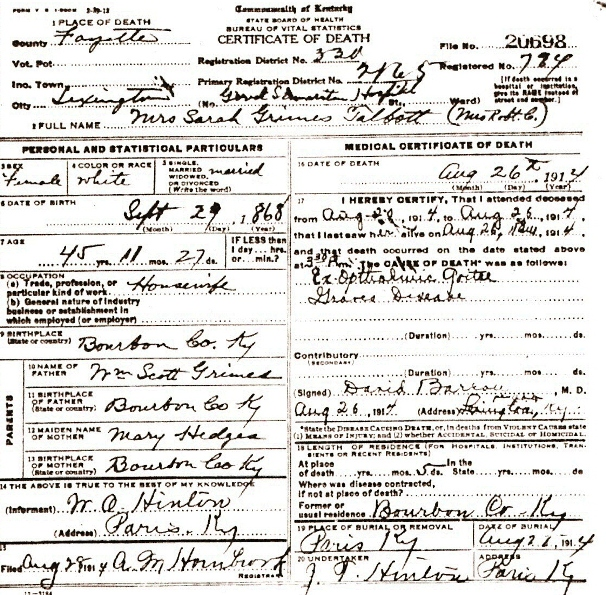 FORM V S 1-500M 2-29-12
Commonwealth of Kentucky
STATE BOARD OF HEALTH
BUREAU OF VITAL STATISTICS
CERTIFICATE OF DEATH
1 PLACE OF DEATH
County Fayette
File No. 20698
Vot. Pct.
Registration District No. 330
Registered No. 794
Inc. Town
Primary Registration District No. 2165
[If death occurred in a hospital or institution, give its NAME instead of street and number.]
City Lexington (No. Good Samaritan Hospital St., Ward)
2 FULL NAME Mrs Sarah Grimes Talbott (Mrs Robt. C.)
PERSONAL AND STATISTICAL PARTICULARS
3 SEX Female
4 COLOR OR RACE White
5 SINGLE, MARRIED, WIDOWED, OR DIVORCED (Write the word) married
6 DATE OF BIRTH Sept 29, 1868
(Month) (Day) (Year)
7 AGE 45 yrs. 11 mos. 27 ds.
IF LESS than 1 day... hrs. or min.?
8 OCCUPATION
(a) Trade, profession, or particular kind of work Housewife
(b) General nature of industry business or establishment in which employed (or employer)
9 BIRTHPLACE
(State or country) Bourbon Co. Ky
PARENTS
10 NAME OF FATHER Wm Scott Grimes
11 BIRTHPLACE OF FATHER (State or country) Bourbon Co Ky
12 MAIDEN NAME OF MOTHER Mary Hedges
13 BIRTHPLACE OF MOTHER (State or country) Bourbon Co Ky
14 THE ABOVE IS TRUE TO THE BEST OF MY KNOWLEDGE
(Informant) W. O. Hinton
(Address) Paris, Ky
15
Filed Aug 28, 1914 A M Hornbrook
REGISTRAR
11-3184
MEDICAL CERTIFICATE OF DEATH
16 DATE OF DEATH
Aug 26th, 1914
(Month) (Day) (Year)
17 I HEREBY CERTIFY, That I attended deceased
from Aug 20, 1914, to Aug 26, 1914,
that I last saw her alive on Aug 26, 1914,
and that death occurred on the date stated above
at 3:30 P m. The CAUSE OF DEATH* was as follows:
Ex Opthalmic Goitre
Graves Disease
(Duration) yrs. mos. ds.
Contributory
(SECONDARY)
(Duration) yrs. mos. ds.
(Signed) David Barrow, M. D.
Aug 26, 1914 (Address) Lexington, Ky.
*State the DISEASE CAUSING DEATH, or, in deaths from VIOLENT CAUSES state (1) MEANS OF INJURY; and (2) whether ACCIDENTAL, SUICIDAL OR HOMICIDAL.
18 LENGTH OF RESIDENCE (FOR HOSPITALS, INSTITUTIONS, TRANSIENTS OR RECENT RESIDENTS)
At place of death yrs. mos. 5 ds. In the State yrs. mos. ds.
Where was disease contracted, if not at place of death?
Former or usual residence Bourbon Co. Ky
19 PLACE OF BURIAL OR REMOVAL
Paris Ky
DATE OF BURIAL
Aug 26, 1914
20 UNDERTAKER
J. T. Hinton
ADDRESS
Paris Ky